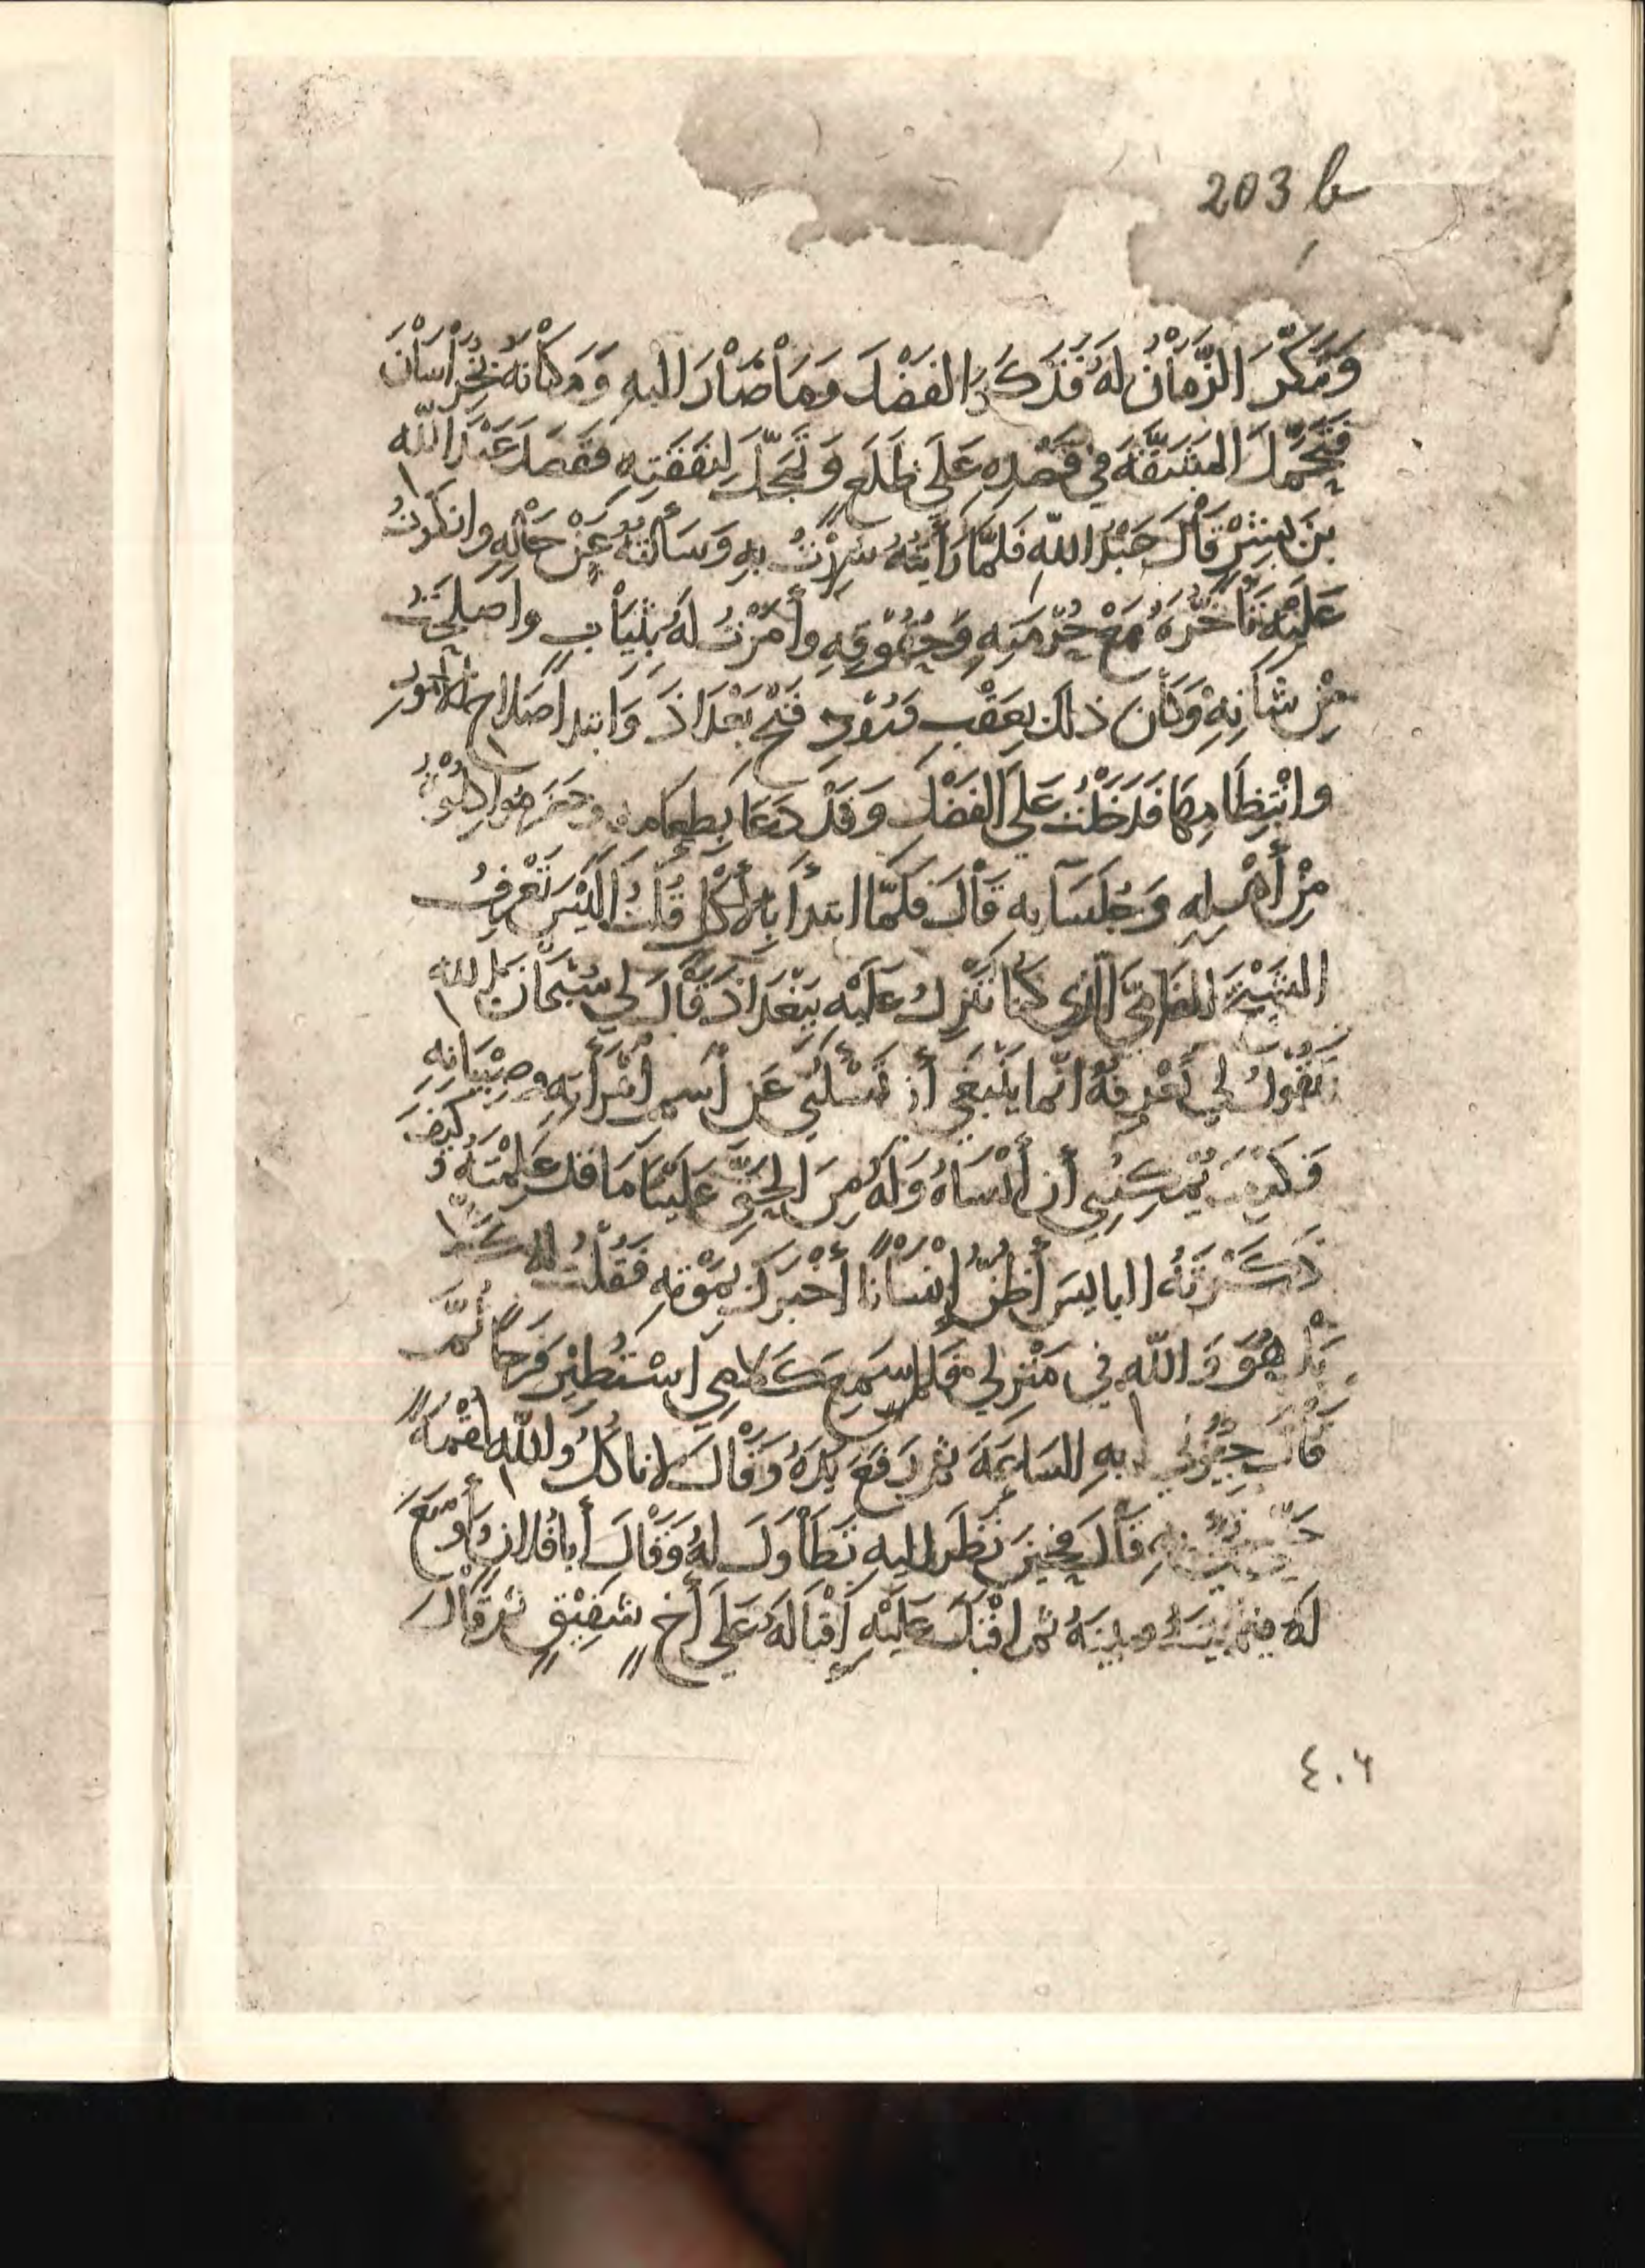 203 b
وَتَنَكَّرَ الزَّمَانُ لَهُ فَذَكَرَ الفَضْلَ وَمَا صَارَ اليهِ وَمَكَانَهُ بِخُرَاسَانَ
فَتَحَمَّلَ المَشَقَّةَ فِي قَصْدِهِ عَلَى ظَلَعٍ وَتَمَحَّلَ لِنَفَقَتِهِ فَقَصَدَ عَبْدَ اللّه
بْنَ بِشْرٍ قَالَ عَبْدُ اللّهِ فَلَمَّا رَأَيْتُهُ سُرِرْتُ بِهِ وَسَأَلتُهُ عَنْ حَالِهِ وانكرتُ
عَلَيْهِ تَأَخُّرَهُ مَعَ حُرْمَتِهِ وَحُقُوقِهِ وأمَرْتُ لَهُ بِثِيَابٍ واصلحتُ
مِنْ شَانِهِ وَكَان ذلك بِعَقْبِ وُرُودِ فَتْحِ بَغْدَاذَ وَابتدا صَلاحِ الامُورِ
وانْتِظَامِهَا فَدَخَلْتُ عَلَى الفَضْلِ وَقَدْ دَعَا بِطَعَامِهِ وحضر مُوَاكِلُوهُ
مِنْ أَهْلِهِ وَجُلَسَآيهِ قَالَ فَلَمَّا ابتدأ بِالأَكْلِ قُلتُ الَيْسَ تَعْرِفُ
الشَيْخَ الذي كُنَا نَنْزِلُ عَلَيْهِ بِبَغْدَاذَ فَقَالَ لِي سُبْحَانَ اللّه
تَقُولُ لِي تَعْرِفهُ انّما يَنْبَغِي أن تَسْئَلَنِي عَن اسم امْرَأَتِهِ وصِبْيَانِهِ
فَكَيفَ يُمْكِنُنِي أن أَنْسَاهُ وَلَهُ مِنَ الحَقِّ عَلَيْنَا مَا قَد عَلِمْتَهُ وَكَيفَ
ذَكَرْتَهُ البايس أَظنُّ إنْسَانًا أَخْبَرَكَ بِمَوْتِهِ فَقُلْتُ لهُ كَلا
بَلْ هُوَ وَاللّهِ فِي مَنْزِلِي فلما سَمِعَ كَلامِي اسْتُطِيْرَ فَرَحًا ثُمَّ
قَالَ جِيُونِي بِهِ السَاعَةَ ثم رَفَعَ يَدَهُ وَقَالَ لا ناكُلُ واللّهِ لُقْمَةً
حَتَّى قَالَ فحِينَ نَظَرَ اليهِ تَطَاوَلَ لهُ وَقَالَ أَبا فُلانٍ وَأَوْسَعَ
لَهُ فيما بَيْنَهُ وبينَهُ ثم اقْبَلَ عَلَيْهِ إِقْبَالَهُ عَلَى أَخٍ شَفِيْقٍ ثم قَالَ
٤٠٦